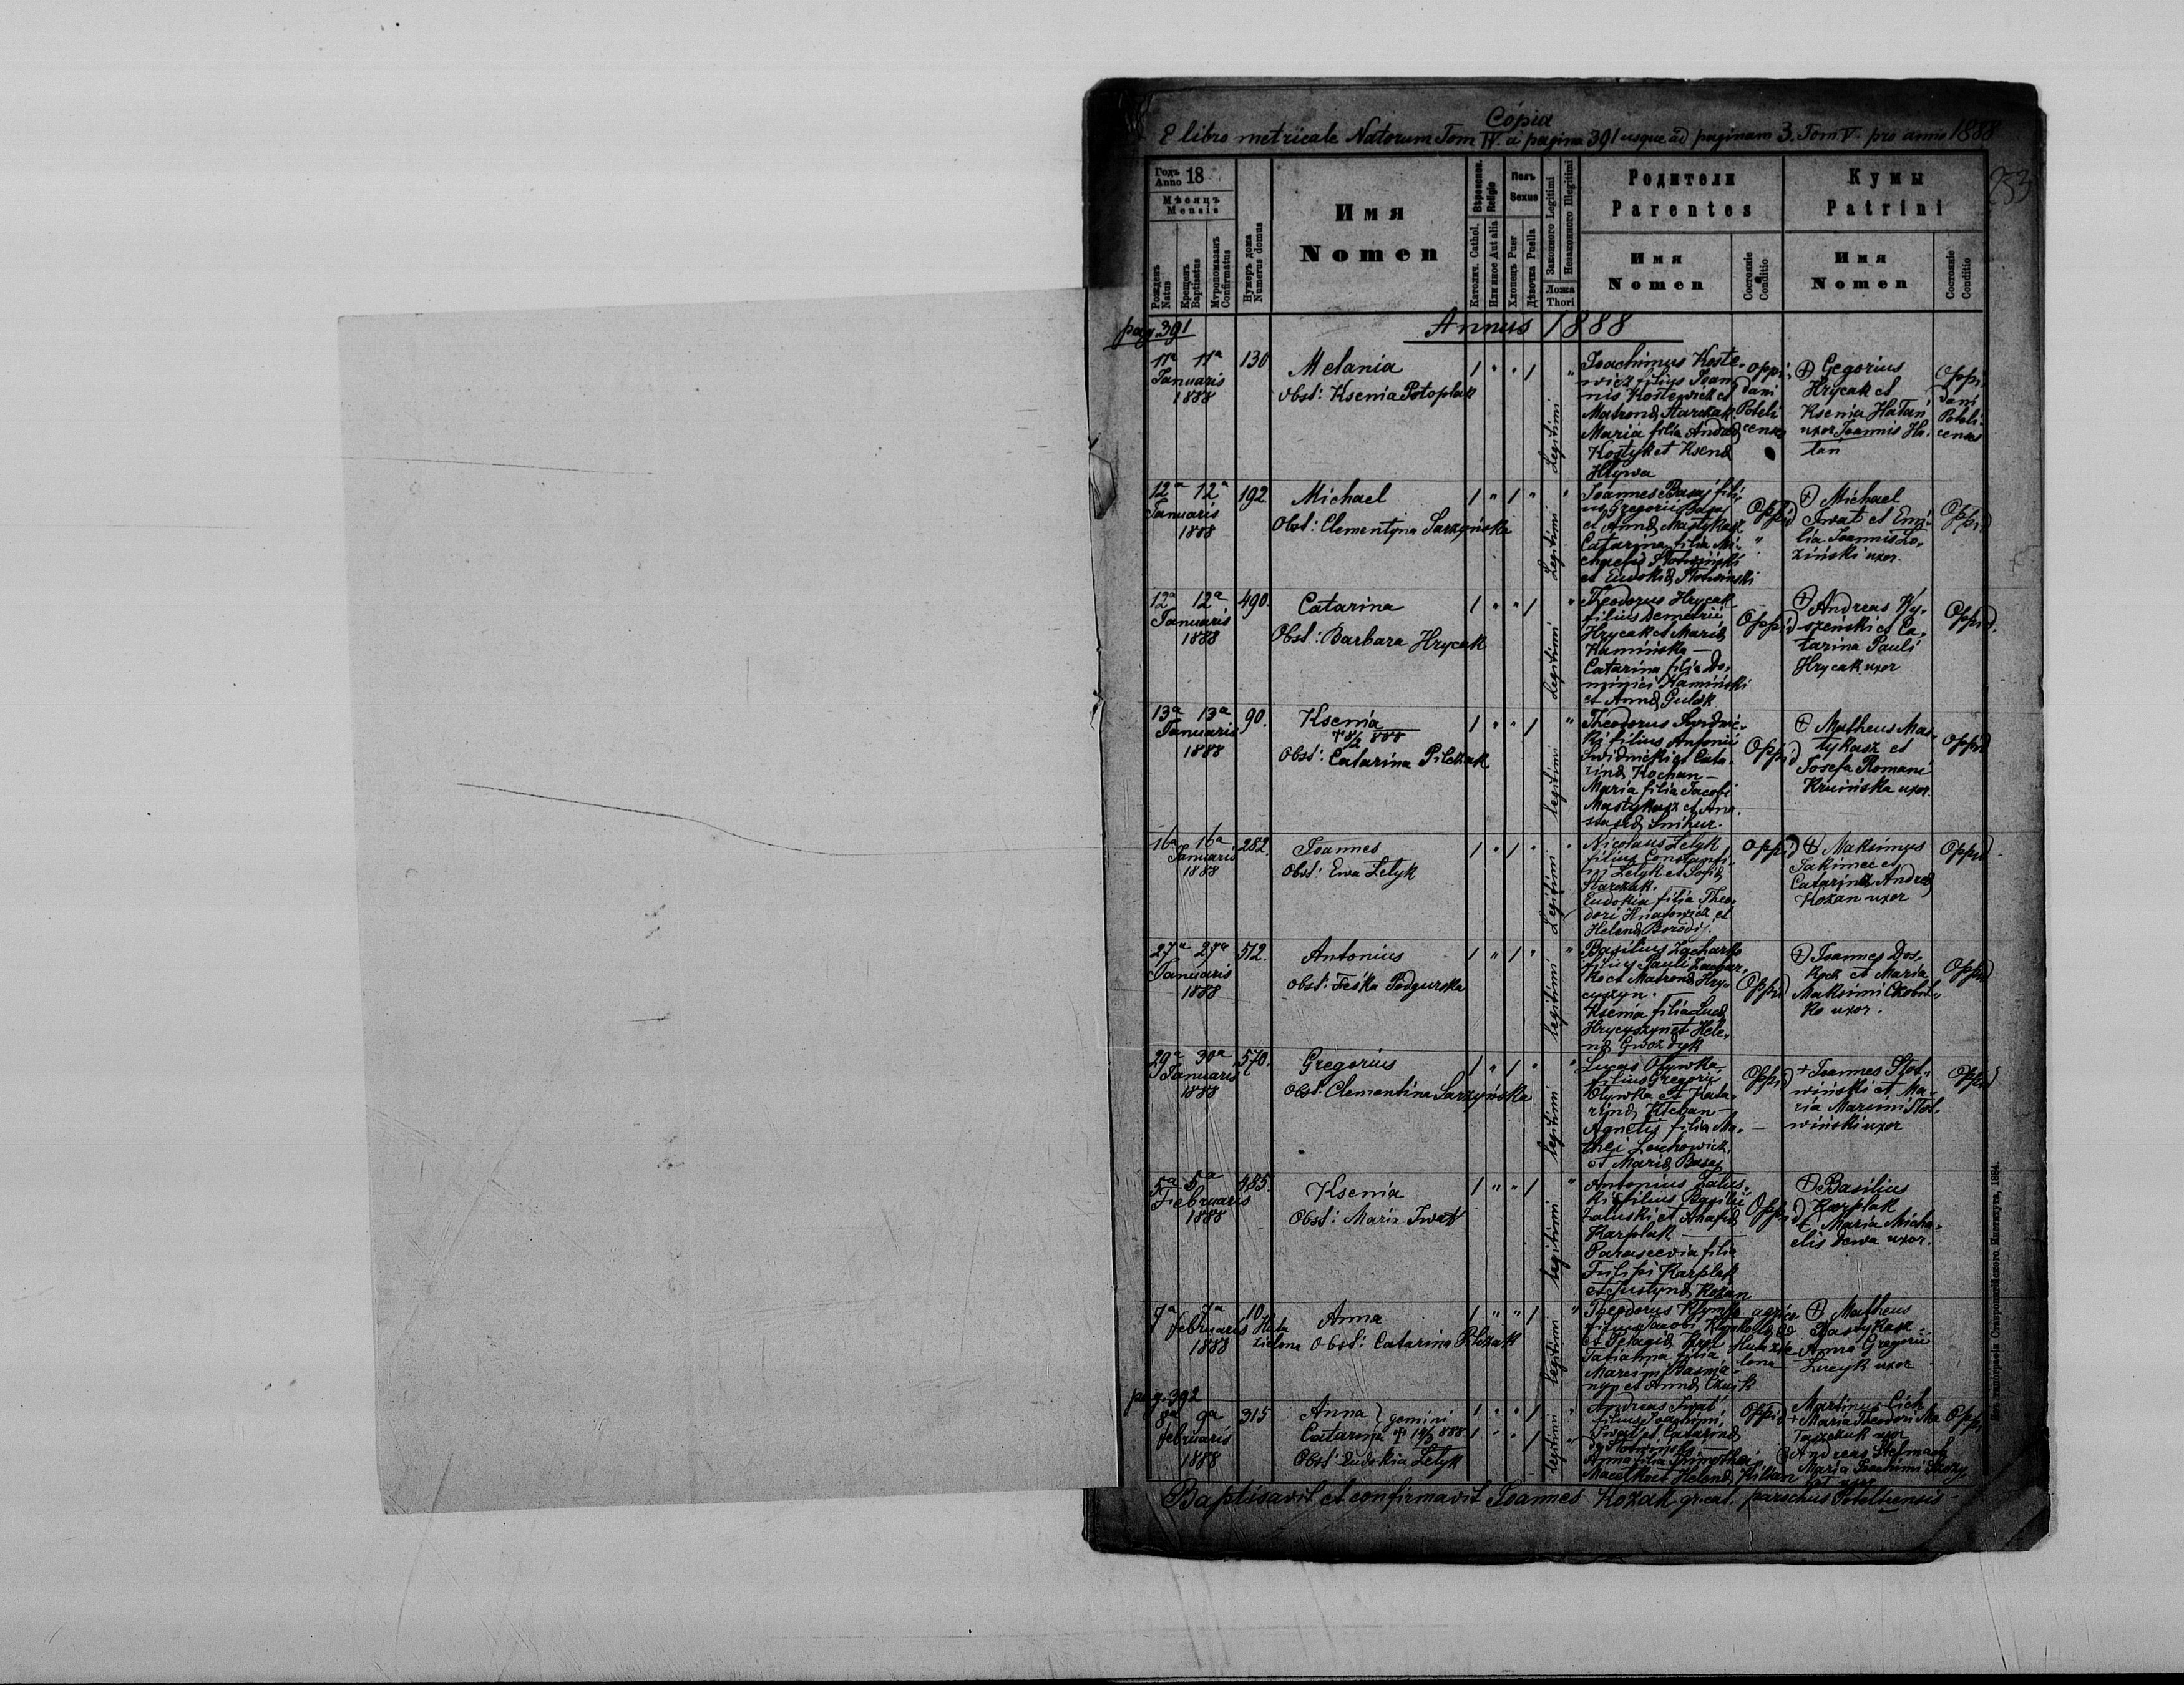 Copia
E libro metricale Natorum Tom IV. a pagina 391 usque ad paginam 3. Tom V. pro anno 1888
253
Годъ
Anno 18
Мѣсяцъ
Mensis
Рожденъ
Natus
Крещенъ
Baptisatus
Мѵропомазанъ
Confirmatus
Нумеръ дома
Numerus domus
Имя
Nomen
Вѣроисповѣд.
Religio
Католич. Cathol.
Или иное Aut alia
Полъ
Sexus
Хлопецъ Puer
Дѣвочка Puella
Законного Legitimi
Незаконного Illegitimi
Ложа
Thori
Родители
Parentes
Имя
Nomen
Состояніе
Conditio
Кумы
Patrini
Имя
Nomen
Состояніе
Conditio
pag. 391
Annus 1888
11a 11a
Januaris
1888
130
Melania
Obst: Ksenia Potoplak
Legitimi
Joachimus Koste-
wicz filius Joan
nis Kostewicz et
Matrona Starczak
Maria filia Andreae
Kostyk et Ksenia
Hlywa
Oppi-
dani
Poteli
censes
Gegorius
Hrycak et
Ksenia Hatan
uxor Joannis Ha-
tan
Oppi-
dani
Poteli-
censes
12a 12a
Januaris
1888
192
Michael
Obst: Clementyna Sarzyńska
Legitimi
Joannes Basaj fili-
us Gregorii Basaj
et Anna Mastykasz
Catarina filia Mi-
chaelis Słotwiński
et Eudokia Słotwinski
Oppid
Michael
Iwat et Emi-
lia Joannis Ło-
ziński uxor.
Oppid
12a 12a
Januaris
1888
490.
Catarina
Obst: Barbara Hrycak
Legitimi
Theodorus Hrycak
filius Demetrii
Hrycak et Maria
Kaminska —
Catarina filia Do-
minici Kaminski
et Anna Gulak
Oppid
Andreas Ky-
szeński et Ca-
tarina Pauli
Hrycak uxor
Oppid.
13a 13a
Januaris
1888
90.
Ksenia
Obst: Catarina Pilczak
legitimi
Theodorus Swidnic-
ki filius Antonii
Swidnicki et Cata-
rina Kochan —
Maria filia Jacobi
Mastykasz et Ana-
stasia Snihur.
Oppid
Matheus Mas-
tykasz et
Josefa Romani
Kruińska uxor.
Oppid
16a 16a
Januaris
1888
282.
Joannes
Obst: Ewa Zelyk
Legitimi
Nicolaus Zelyk
filius Constanti-
ni Zelyk et Sofia
Starczak.
Eudokia filia Theo-
dori Hnatowicz et
Helena Borodij.
Oppid
Maksimus
Jakimec et
Catarina Andreae
Kozan uxor
Oppid
27a 27a
Januaris
1888
512.
Antonius
Obst: Feska Podgurska
legitimi
Basilius Zacharko
filius Pauli Zachar-
ko et Matrona Hry-
cyszyn.
Ksenia filia Luca
Hrycyszyn et Hele-
na Gwozdyk
Oppid
Joannes Dos-
kocz et Maria
Maksimi Czobit-
ko uxor.
Oppid
29a 30a
Januaris
1888
570.
Gregorius
Obst: Clementina Sarzyńska
legitimi
Lucas Olywka
filius Gregorii
Olywka et Kata-
rina Kleban —
Agnetis filia Ma-
thei Lechowicz
et Maria Basaj
Oppid
+ Joannes Słot-
wiński et Ma-
ria Marcini Słot-
wiński uxor
Oppid
5a 5a
Februaris
1888
485.
Ksenia
Obst: Maria Iwat
legitimi
Antonius Zalus-
ki filius Basilii
Zaluski et Anasta
Karplak
Parascevia filia
Filipi Karplak
et Justyna Kozan
Oppid
Basilius
Karplak
et Maria Micha-
elis Dewa uxor.
7a 7a
februaris
1888
10
Huta
zielona
Anna
Obst: Catarina Pilczak
legitimi
Theodorus Klymko
filius Jacobi Klymko
et Pelagia Krol
Tatianna filia
Marcini Basma-
nyn et Anna Czuj k
agrico
lae de
Huta zie
lona
Matheus
Mastykasz
Anna Gregorii
Lucyk uxor
pag. 392
8a 9a
februaris
1888
315
Anna } gemini
Catarina + 14/3 888
Obst: Eudokia Zelyk
legitimi
Andreas Iwat
filius Joachimi
Iwat et Catarina
Słotwinska —
Anna filia Timothei
Macelko et Helena Kilian
Oppid
Martinus Cich
+ Maria Theodori Ma
tajczuk uxor
Andreas Stelmach
Maria Joachimi
uxor
Opp
Baptisavit et confirmavit Joannes Kozak gr. cat. parochus Potelicensis
Изъ типографіи Ставропигійского Института, 1884.